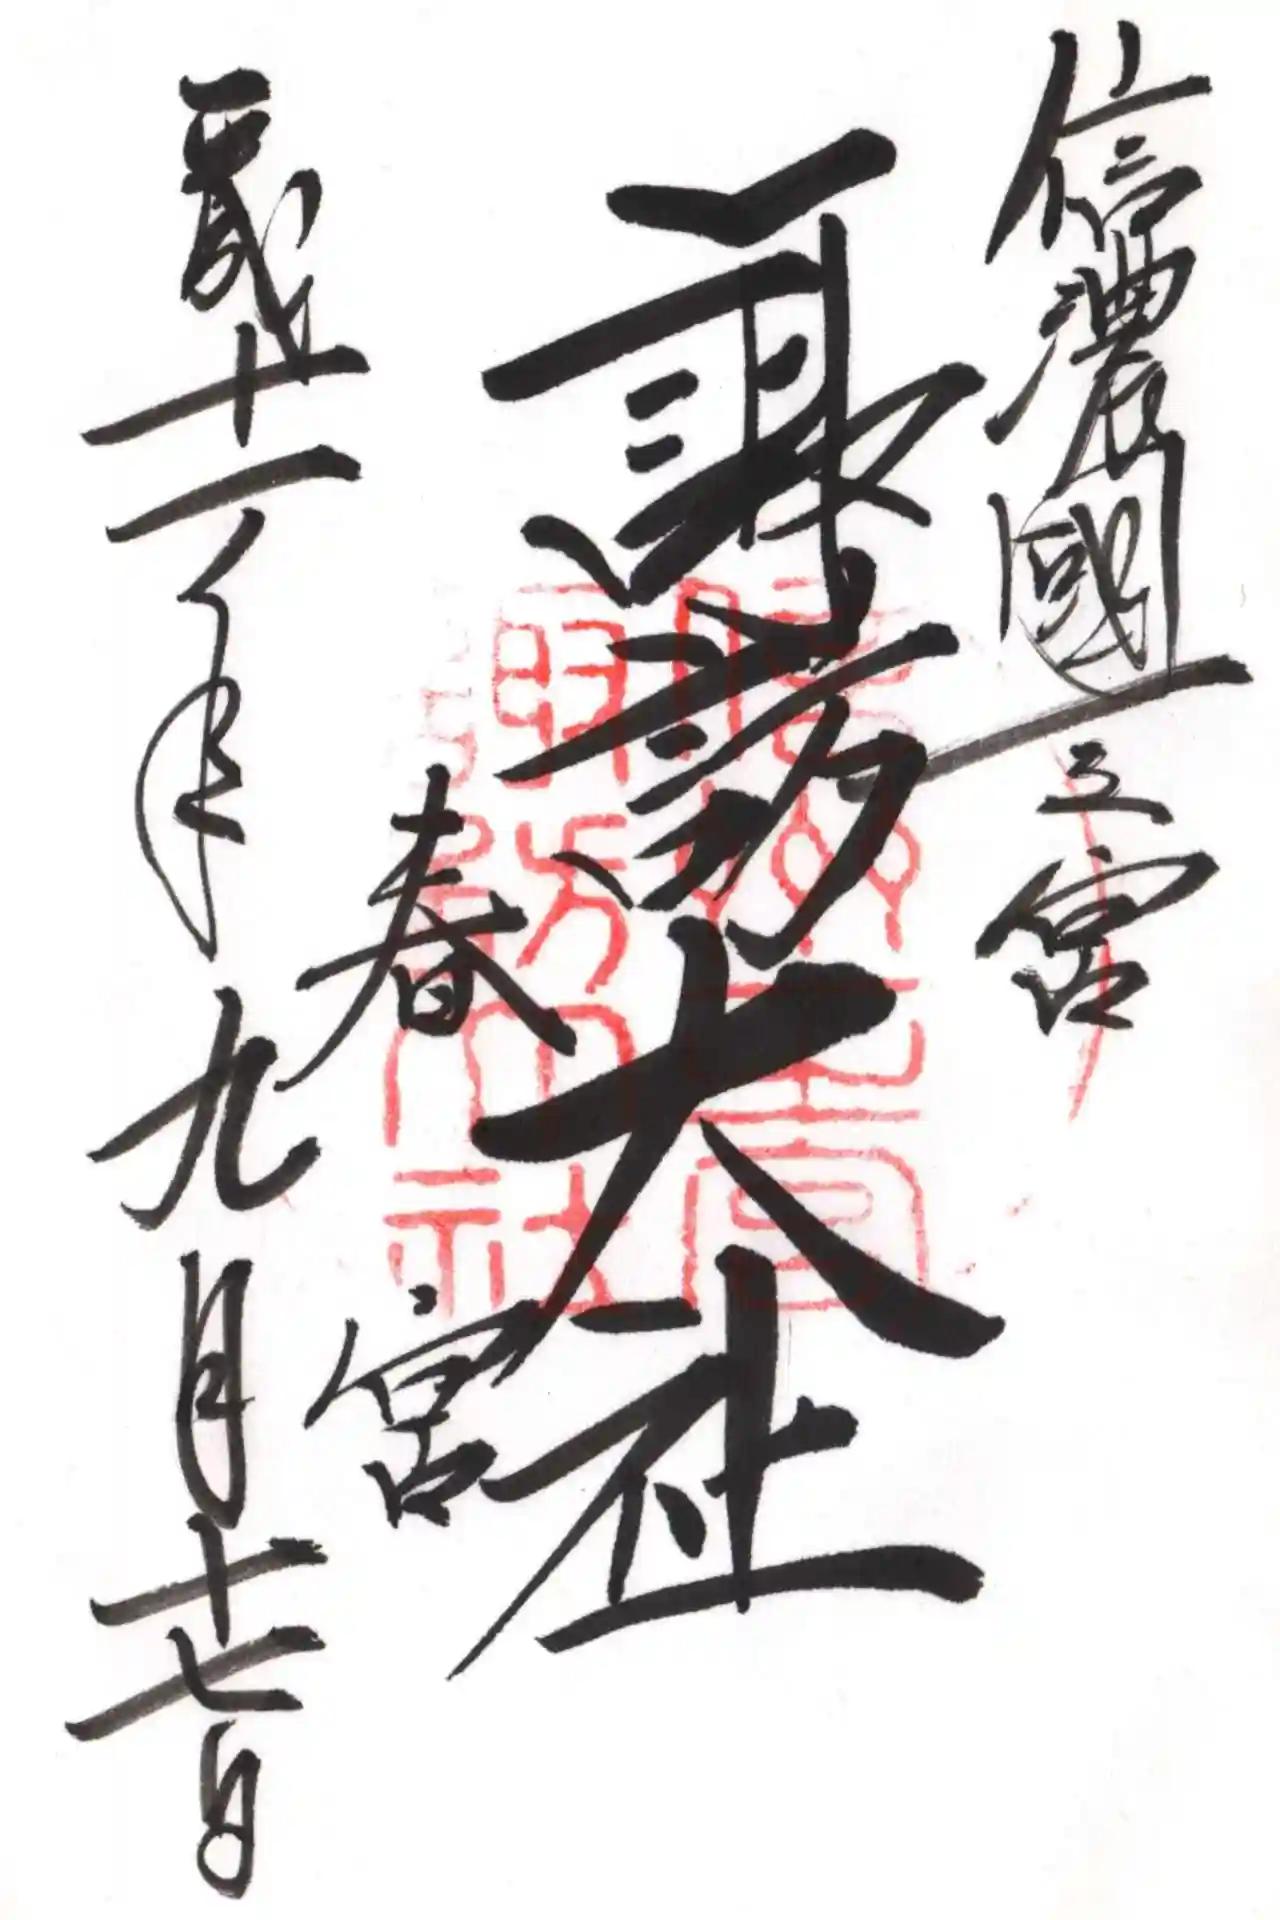 信濃國一之宮
諏訪大社
春宮
貳十一年九月十七日
信州一之宮
諏訪大社